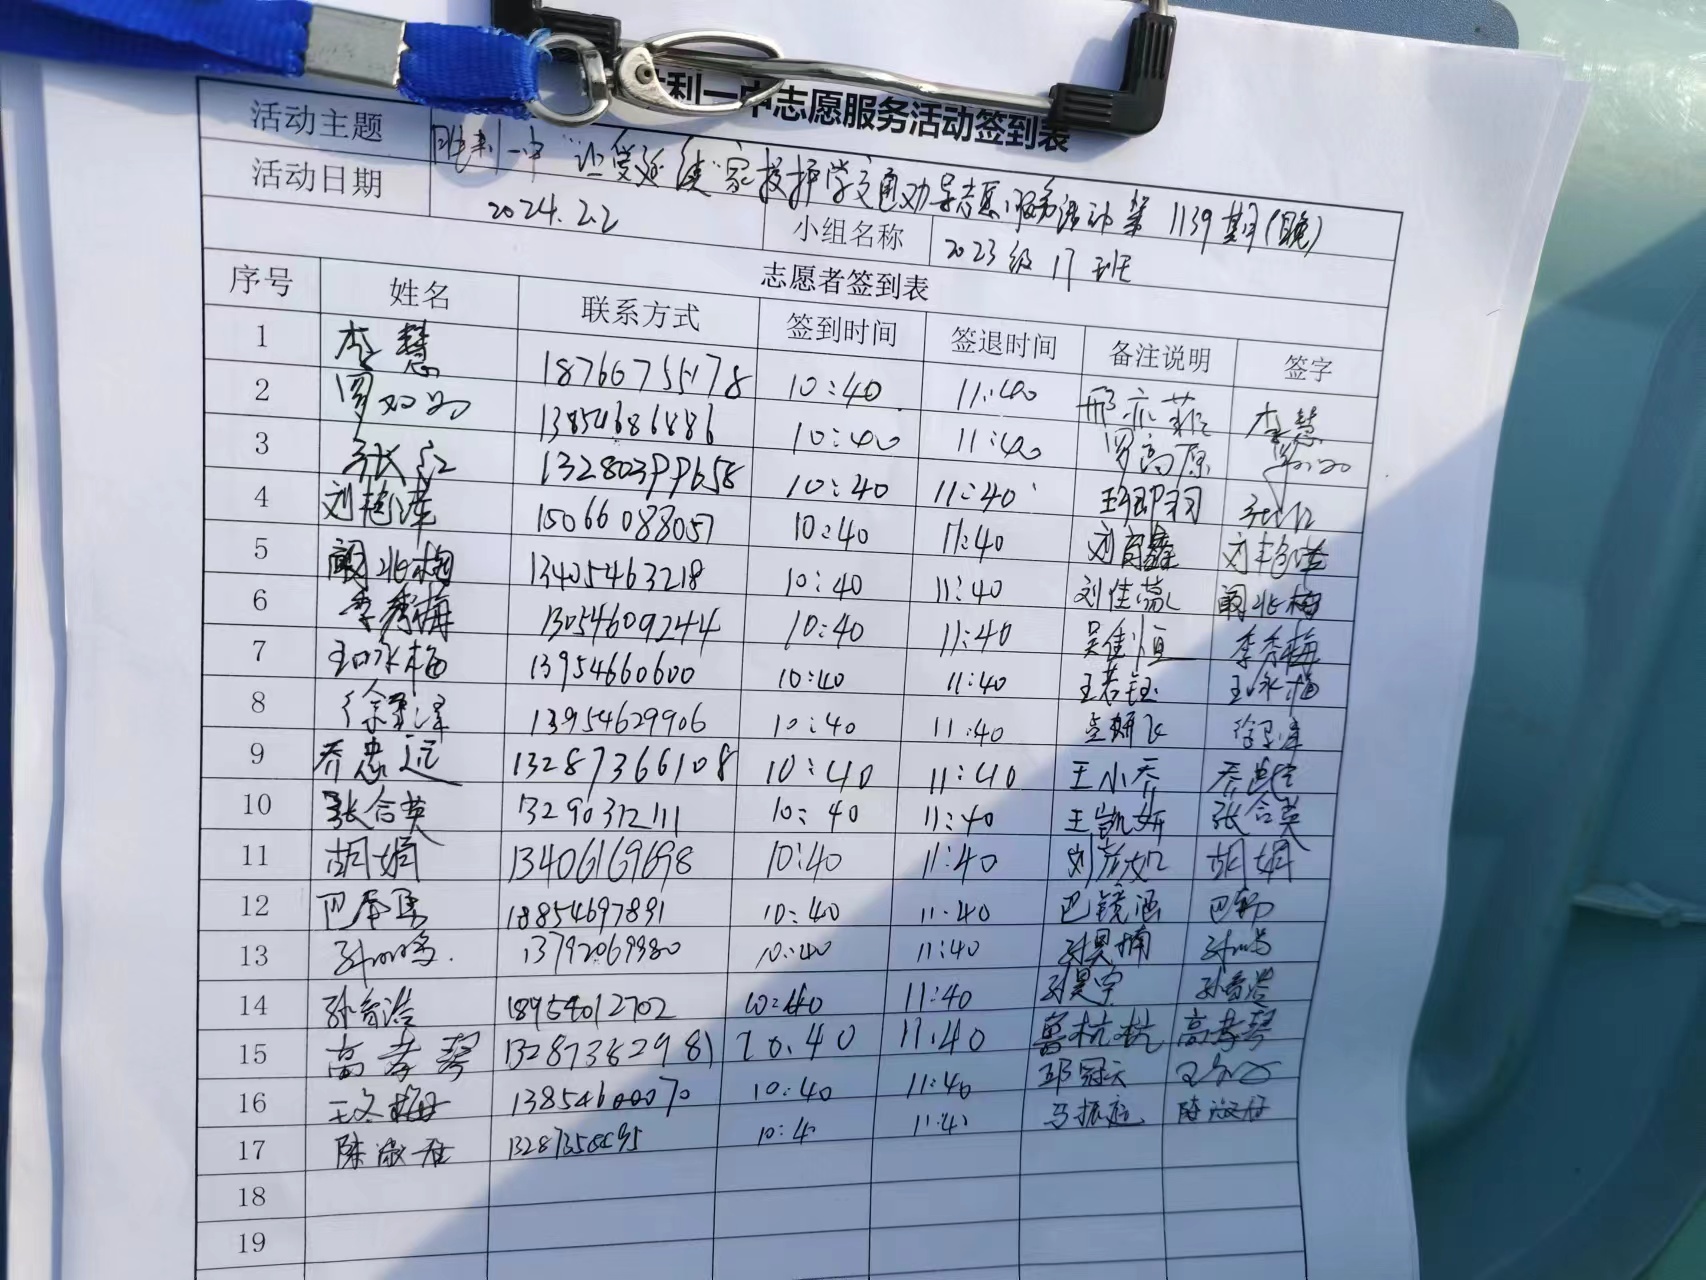 利一中志愿服务活动签到表
活动主题 胜利一中"让爱延续"家校护学交通劝导志愿服务活动第1139期(晚)
活动日期 2024.2.2 小组名称 2023级17班
志愿者签到表
序号 姓名 联系方式 签到时间 签退时间 备注说明 签字
1 李慧 18766735178 10:40 11:40 邢亦菲 李慧
2 13854686886 10:40 11:40 罗高原
3 张红 13280399658 10:40 11:40 张红
4 刘艳萍 15066088057 10:40 11:40 刘育鑫 刘艳萍
5 阚北梅 13405463218 10:40 11:40 刘佳蕊 阚北梅
6 李秀梅 13054609244 10:40 11:40 吴佳恒 李秀梅
7 王咏梅 13954660600 10:40 11:40 王若钰 王咏梅
8 13954629906 10:40 11:40
9 乔忠远 13287366108 10:40 11:40 王小乔 乔忠远
10 张合英 13290312111 10:40 11:40 王凯妍 张合英
11 胡娟 13406169698 10:40 11:40 刘彦如 胡娟
12 18854697891 10:40 11:40 巴镜涵
13 13792069980 10:40 11:40 孙昊楠
14 孙春浩 18954012702 10:40 11:40 孙昊宇 孙春浩
15 高孝琴 13287382981 10.40 11:40 鲁杭杭 高孝琴
16 王冬梅 13854600070 10:40 11:40 邱冠天
17 陈淑君 10:4 11:4 马振庭 陈淑君
18
19